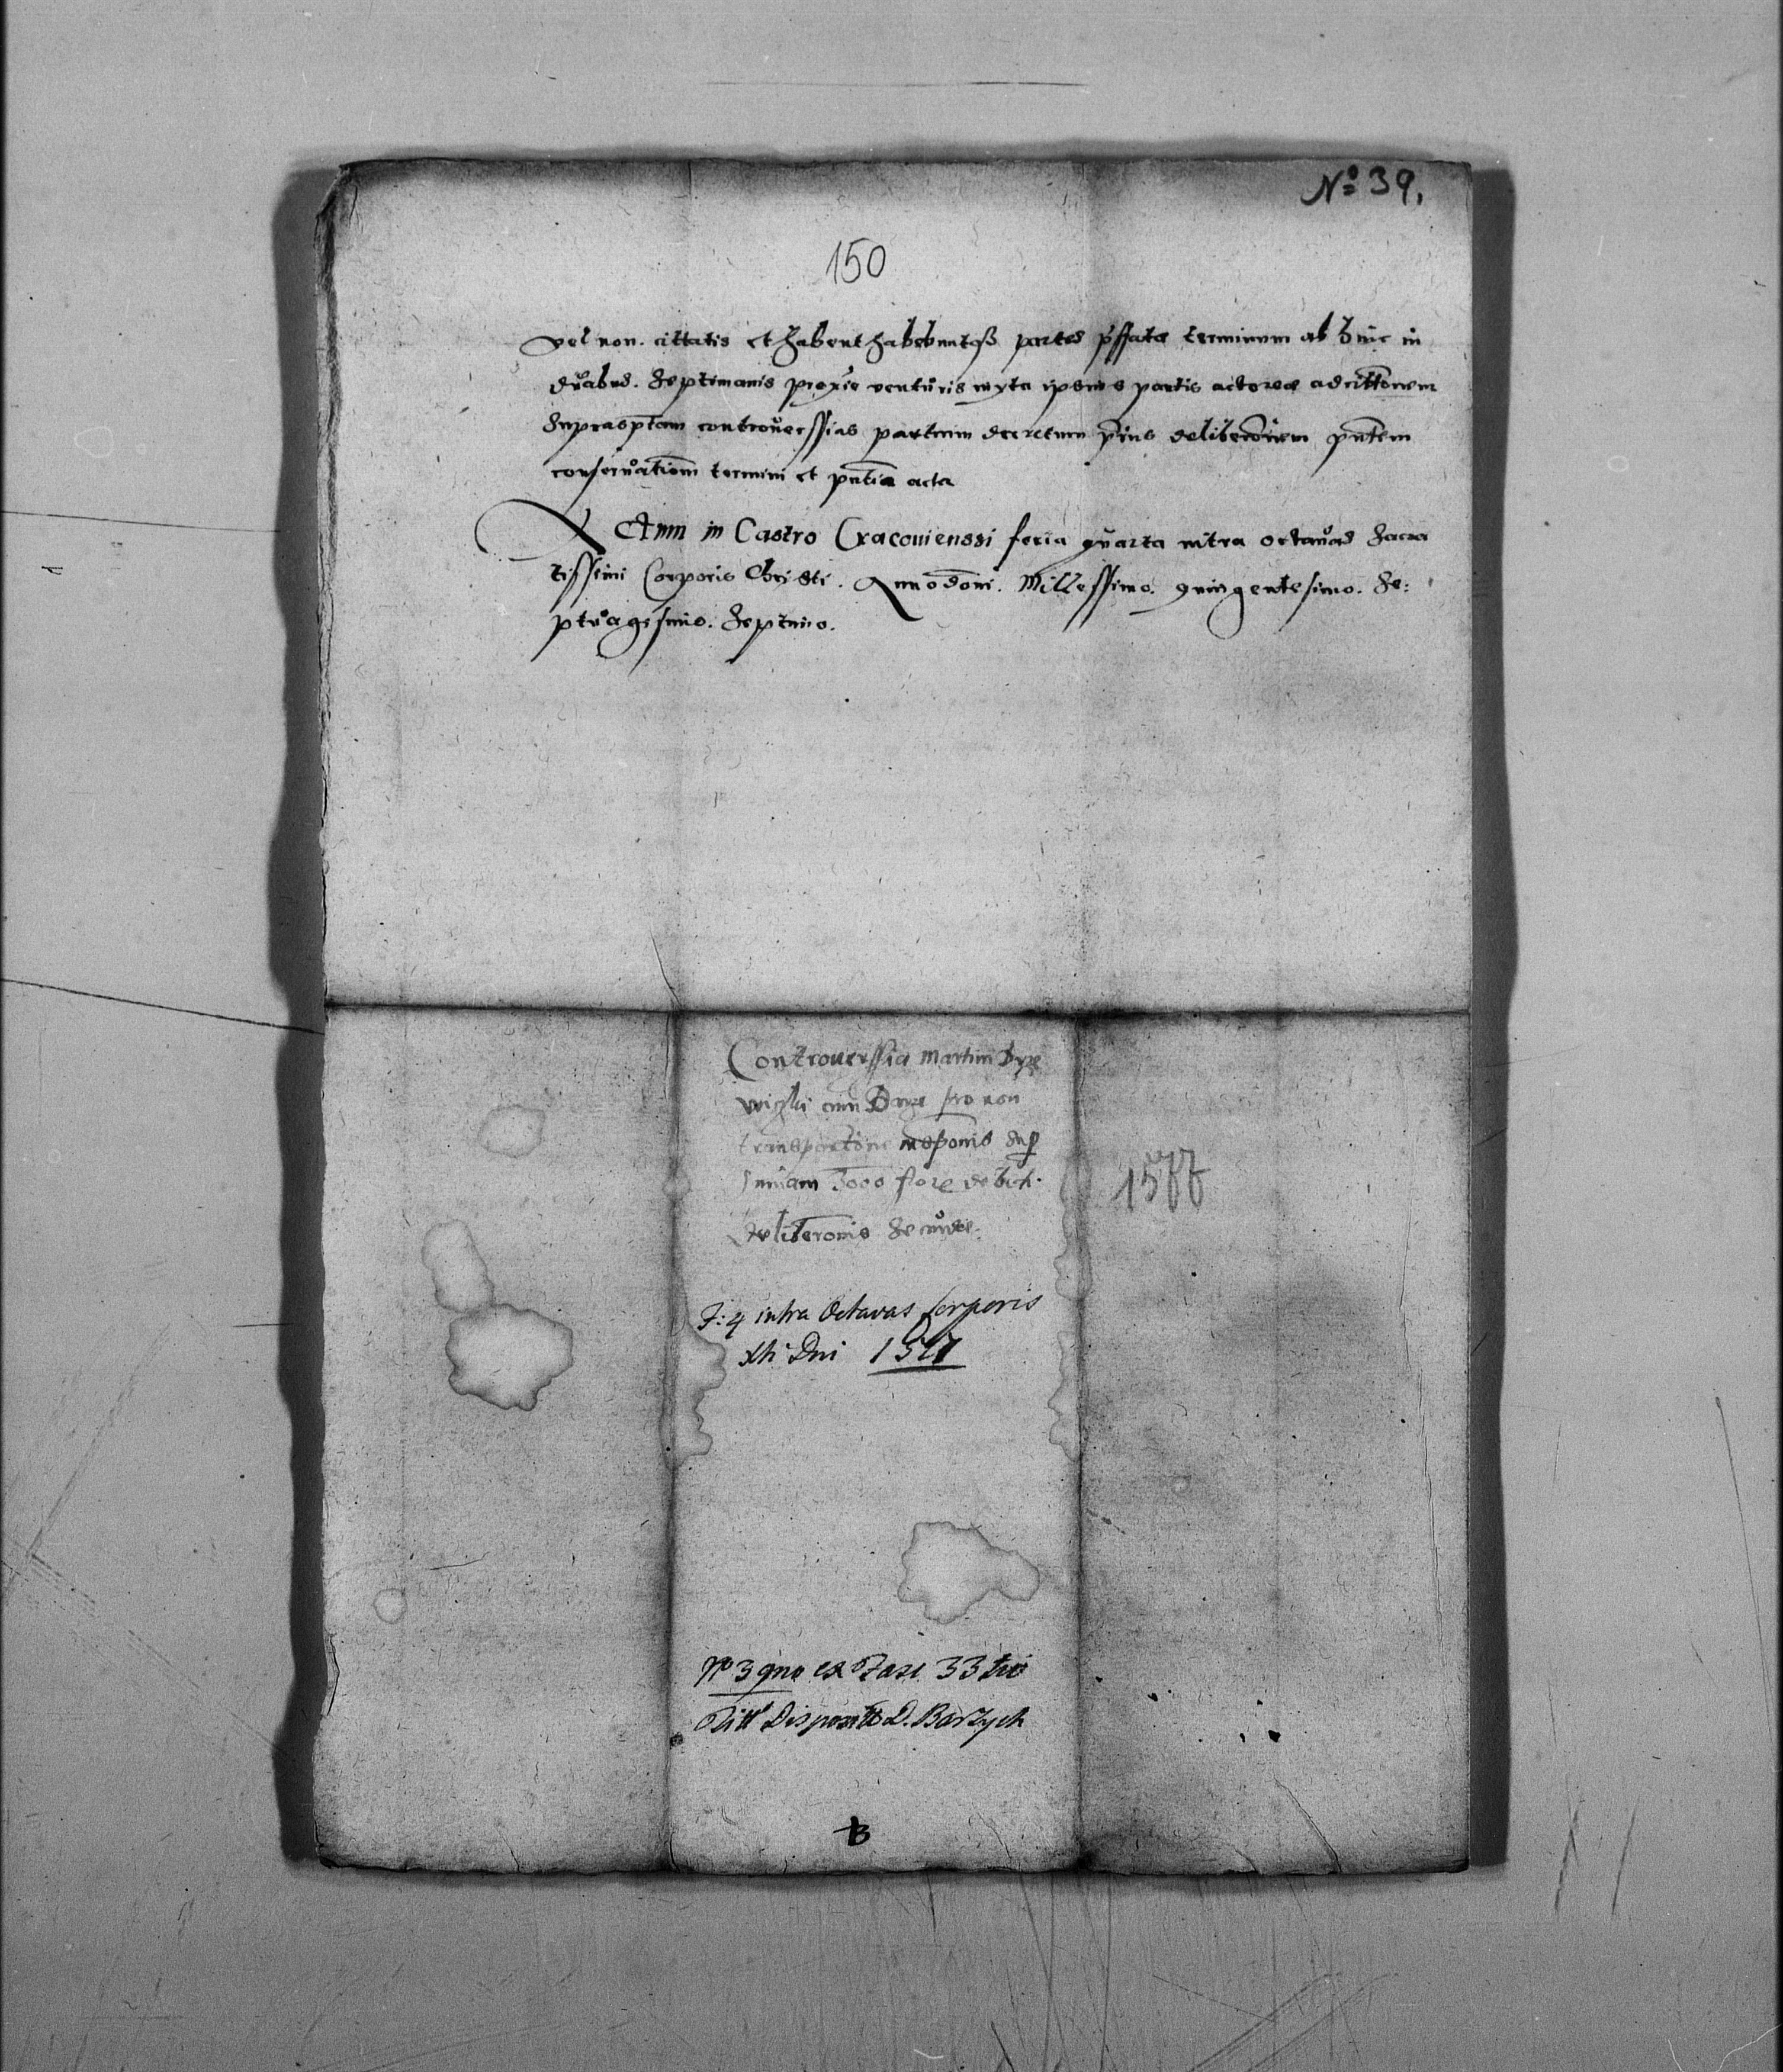 No 39.
150
vel non. cittatis et habent habebuntqȝ partes pffate terminum ab hinc in
duabus. Septimanis proxie venturis iuxta ipsius partis actoree adcittõnem
Suprasptam controuerssias partium decretum prius deliberõnem pntem
conseruatiom termini et pntia acta
Actum in Castro Cracouienssi feria quarta intra octauas Sacra
tissimi Corporis Christi. Anno doni. Millessimo. quingentesimo. Se:
ptuagesimo. Septimo.
Controuerssia Martini
cum pro non
transportõne inspõnis sup
summam 3000 flore
deliberõnis
1577
F: 4 intra Octavas Corporis
Xti Dni 1577
No 39no ex Fasc 33tio
Titt Disposittô D. Barzych
B